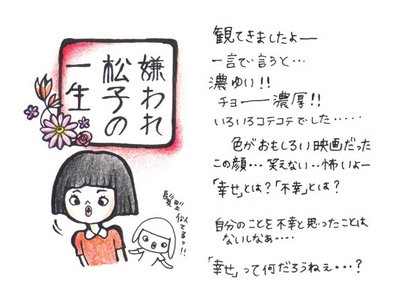 嫌われ
松子の
一生
髪型
似
てるっ!!
観てきましたよー
一言で言うと…
濃ゆい!!
チョー濃厚!!
いろいろコテコテでした……
色がおもしろい映画だった
この顔…笑えない‥怖いよー
「幸せ」とは?「不幸」とは?
自分のことを不幸と思ったことは
ないしなぁ……
「幸せ」って何だろうねぇ…?